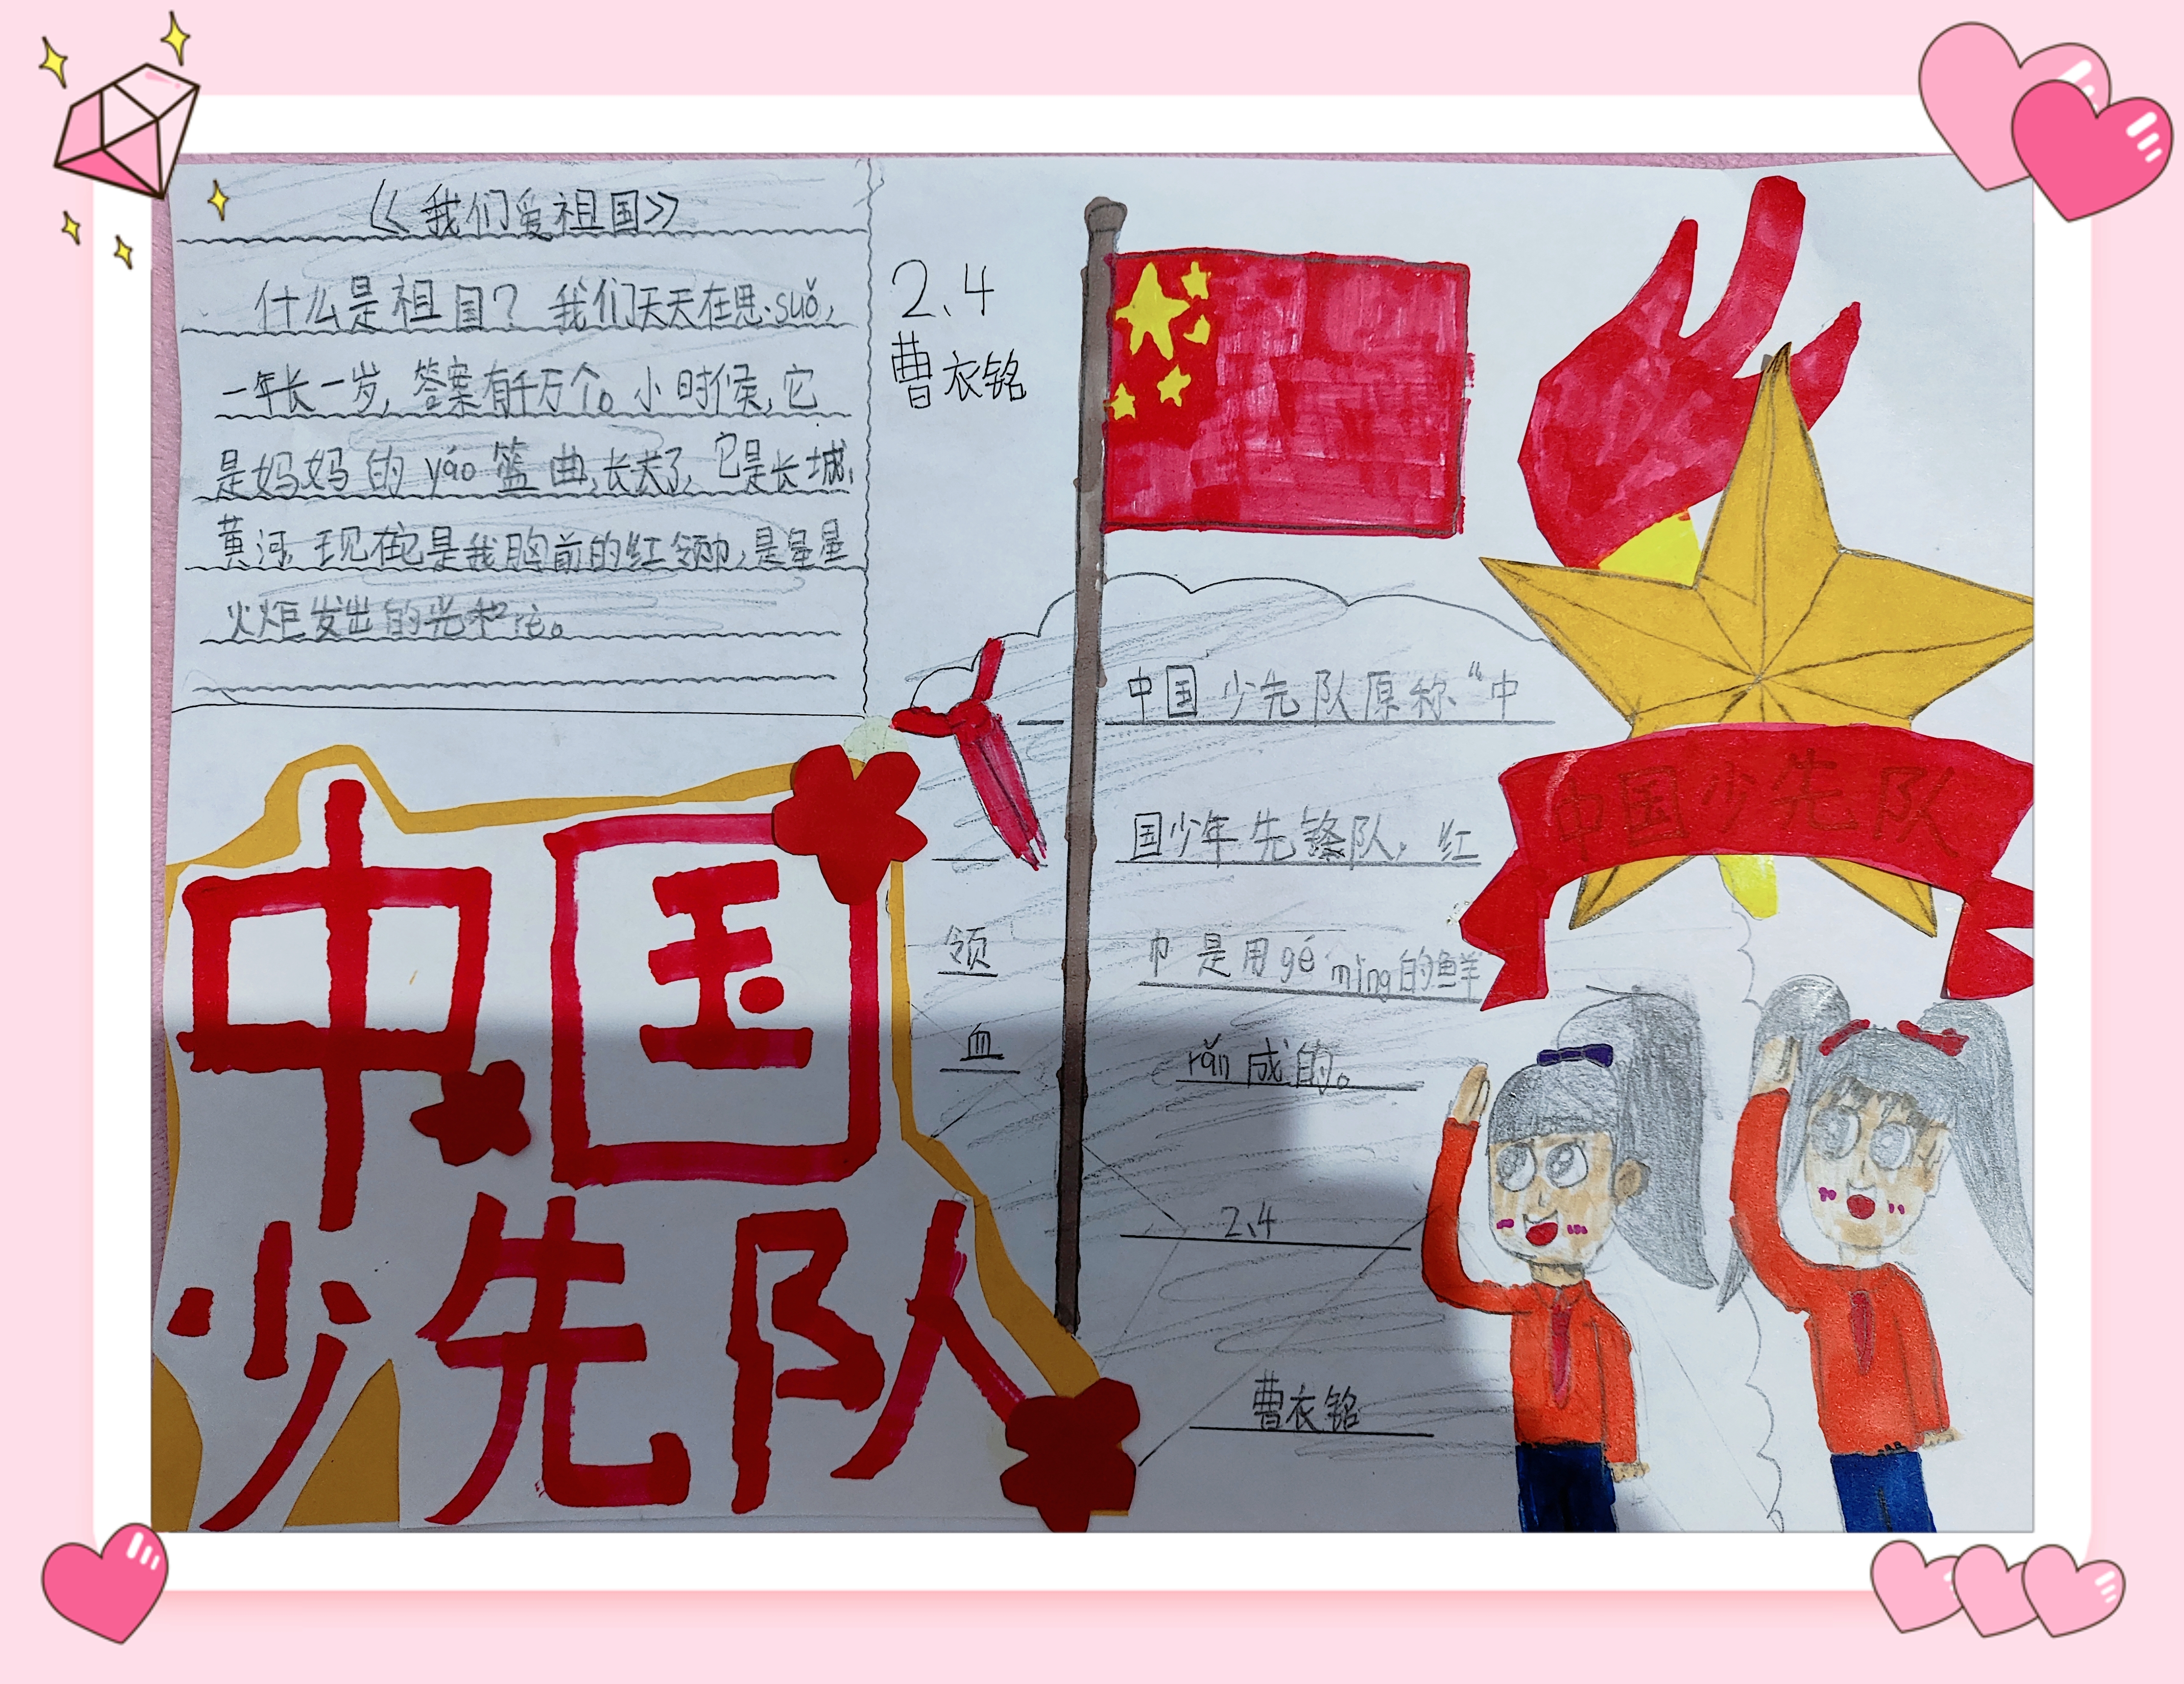 《我们爱祖国》
什么是祖国？我们天天在思suǒ，
一年长一岁，答案有千万个。小时候，它
是妈妈的yáo篮曲，长大了，它是长城、
黄河。现在它是我胸前的红领巾，是星星
火炬发出的光和rè。
2、4
曹衣铭
中国少先队原称“中
国少年先锋队，红
领巾是用gé mìng的鲜
血rǎn成的。
2、4
曹衣铭
中国少先队
中国
少先队